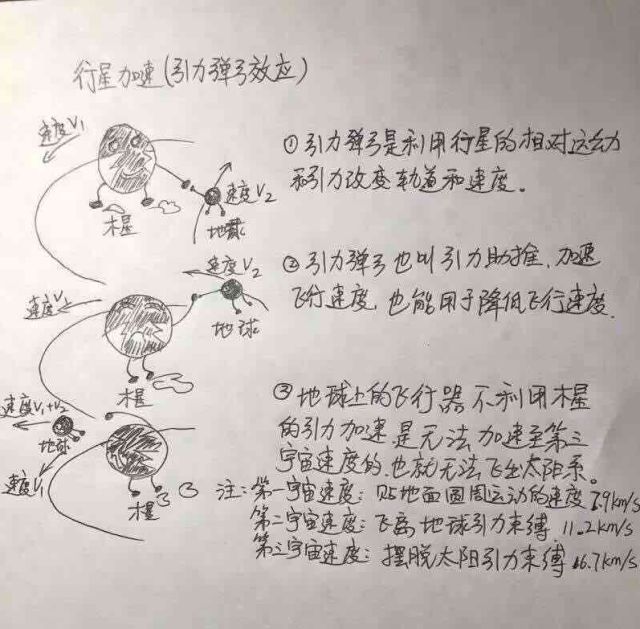 行星加速(引力弹弓效应)
速度V₁
①引力弹弓是利用行星的相对运动
和引力改变轨道和速度。
速度V₂
木星
地球
速度V₂
②引力弹弓也叫引力助推,加速
飞行速度,也能用于降低飞行速度.
速度V₁
地球
木星
③地球上的飞行器不利用木星
的引力加速是无法加速至第三
宇宙速度的.也就无法飞出太阳系。
速度V₁+V₂
地球
速度V₁
木星
注:第一宇宙速度:贴地面圆周运动的速度 7.9km/s
第二宇宙速度:飞离地球引力束缚 11.2km/s
第三宇宙速度:摆脱太阳引力束缚 16.7km/s